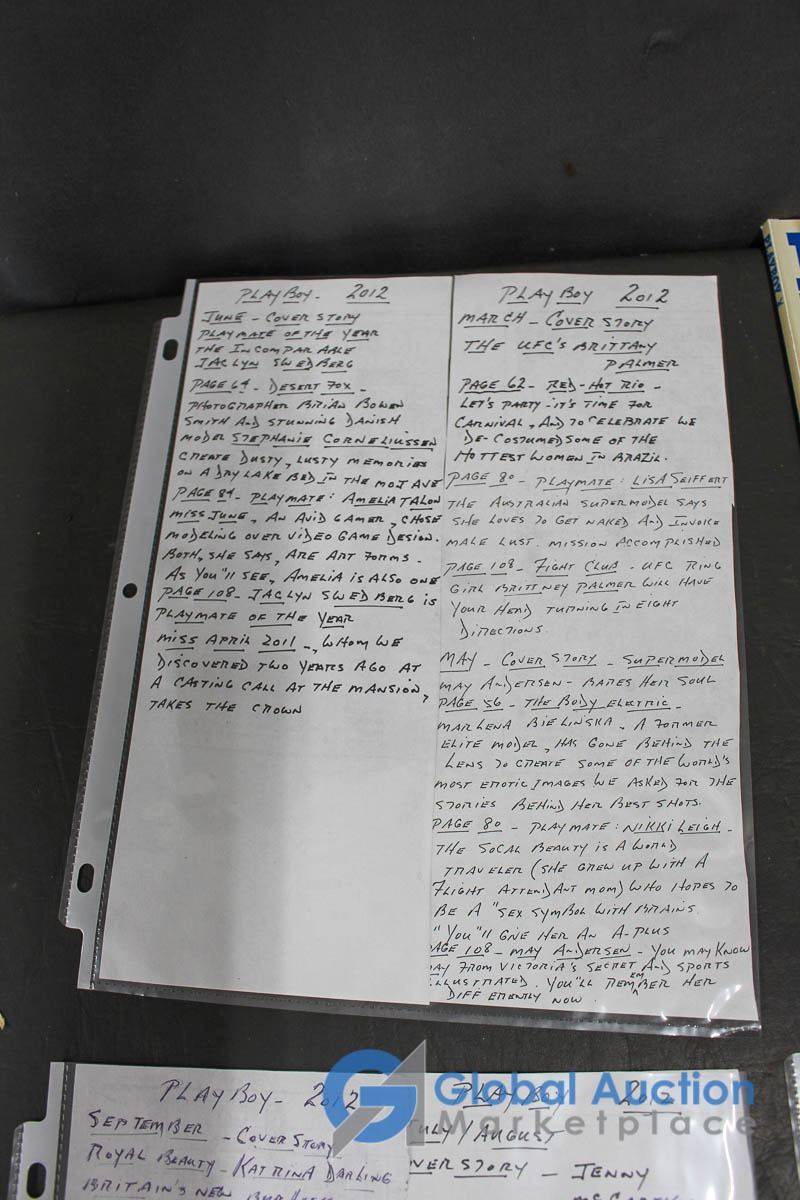 PLAYBOY- 2012
JUNE - COVER STORY
PLAYMATE OF THE YEAR
THE INCOMPARABLE
JACLYN SWEDBERG
PAGE 64 - DESERT FOX -
PHOTOGRAPHER BRIAN BOWEN
SMITH AND STUNNING DANISH
MODEL STEPHANIE CORNELIUSSEN
CREATE DUSTY, LUSTY MEMORIES
ON A DRY LAKE BED IN THE MOJAVE
PAGE 84 - PLAYMATE: AMELIA TALON
MISS JUNE, AN AVID GAMER, CHOSE
MODELING OVER VIDEO GAME DESIGN.
BOTH, SHE SAYS, ARE ART FORMS.
AS YOU"LL SEE, AMELIA IS ALSO ONE
PAGE 108 - JACLYN SWEDBERG IS
PLAYMATE OF THE YEAR
MISS APRIL 2011 -, WHOM WE
DISCOVERED TWO YEARS AGO AT
A CASTING CALL AT THE MANSION,
TAKES THE CROWN
PLAYBOY 2012
MARCH - COVER STORY
THE UFC'S BRITTANY
PALMER
PAGE 62 - RED-HOT RIO -
LET'S PARTY - IT'S TIME FOR
CARNIVAL, AND TO CELEBRATE WE
DE-COSTUMED SOME OF THE
HOTTEST WOMEN IN BRAZIL.
PAGE 80 - PLAYMATE: LISA SEIFFERT
THE AUSTRALIAN SUPERMODEL SAYS
SHE LOVES TO GET NAKED AND INVOKE
MALE LUST. MISSION ACCOMPLISHED
PAGE 108 - FIGHT CLUB - UFC RING
GIRL BRITTNEY PALMER WILL HAVE
YOUR HEAD TURNING IN EIGHT
DIRECTIONS.
MAY - COVER STORY - SUPERMODEL
MAY ANDERSEN - BARES HER SOUL
PAGE 56 - THE BODY ELECTRIC -
MARLENA BIELINSKA, A FORMER
ELITE MODEL, HAS GONE BEHIND THE
LENS TO CREATE SOME OF THE WORLD'S
MOST EROTIC IMAGES WE ASKED FOR THE
STORIES BEHIND HER BEST SHOTS.
PAGE 80 - PLAYMATE: NIKKI LEIGH -
THE SOCAL BEAUTY IS A WORLD
TRAVELER (SHE GREW UP WITH A
FLIGHT ATTENDANT MOM) WHO HOPES TO
BE A "SEX SYMBOL WITH BRAINS
"YOU"LL GIVE HER AN A-PLUS
AGE 108 - MAY ANDERSEN - YOU MAY KNOW
AY FROM VICTORIA'S SECRET AND SPORTS
ILLUSTRATED. YOU'LL REMEMBER HER
DIFFERENTLY NOW.
PLAYBOY
PLAYBOY- 2012
SEPTEMBER - COVER STORY
ROYAL BEAUTY - KATRINA DARLING
BRITAIN'S NEW
PLAYBOY 2012
JULY / AUGUST
OVER STORY - JENNY
Global Auction
Marketplace